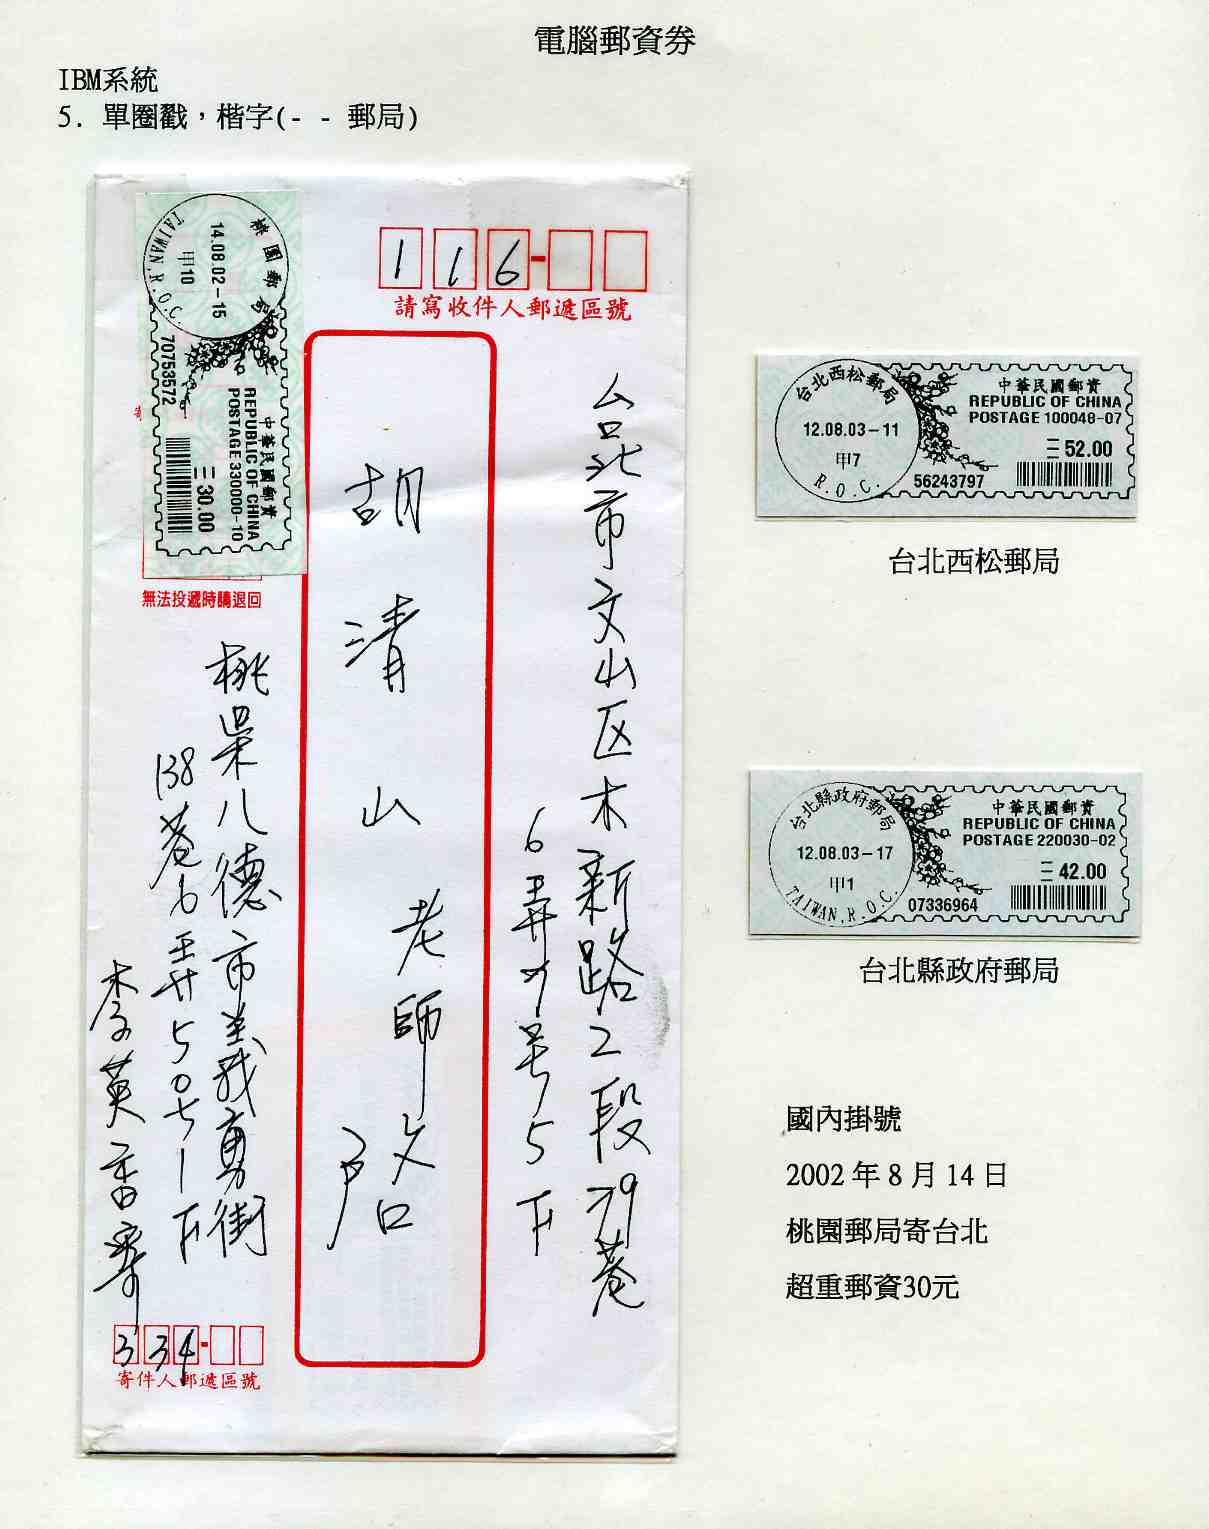 電腦郵資券
IBM系統
5. 單圈戳，楷字(- - 郵局)
桃園郵局
14.08.02-15
甲10
TAIWAN, R.O.C.
70753572
中華民國郵資
REPUBLIC OF CHINA
POSTAGE 330000-10
30.00
116
請寫收件人郵遞區號
台北市文山区木新路2段79巷
6弄
号5下
胡清山老師啟
無法投遞時請退回
桃県八德市義勇街
138巷6弄50号下
李英
寄
334
寄件人郵遞區號
台北西松郵局
12.08.03-11
甲7
R.O.C.
56243797
中華民國郵資
REPUBLIC OF CHINA
POSTAGE 100048-07
52.00
台北西松郵局
台北縣政府郵局
12.08.03-17
甲1
TAIWAN, R.O.C.
07336964
中華民國郵資
REPUBLIC OF CHINA
POSTAGE 220030-02
42.00
台北縣政府郵局
國內掛號
2002 年 8 月 14 日
桃園郵局寄台北
超重郵資30元